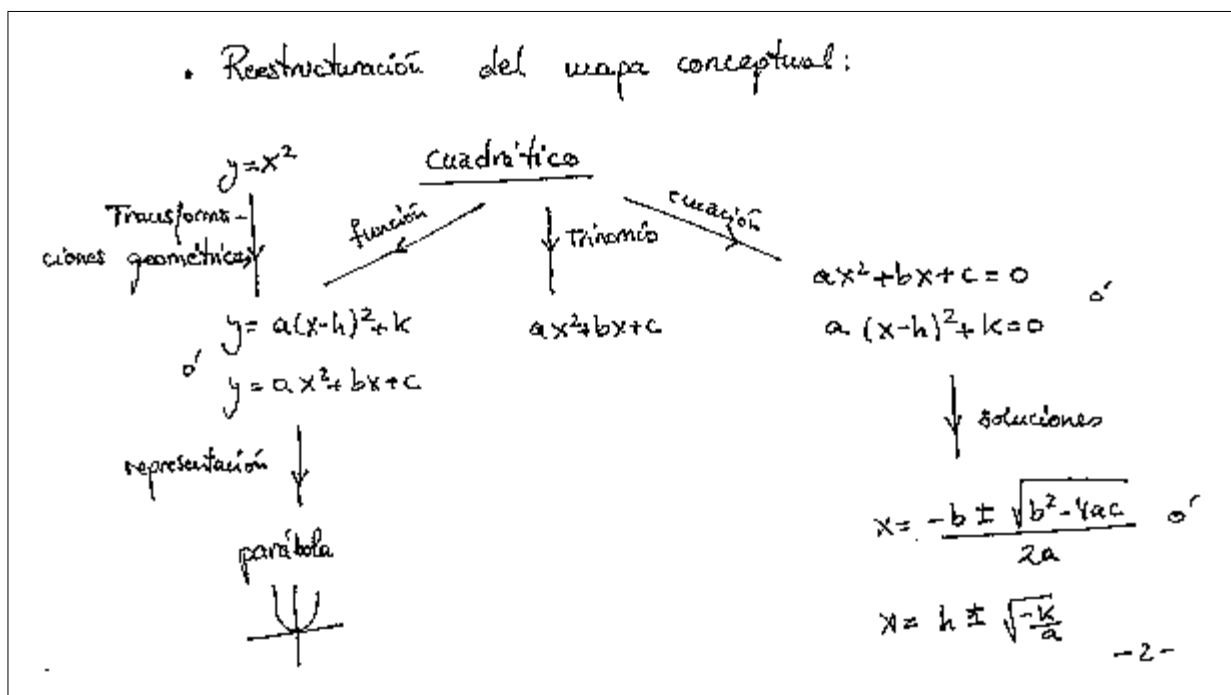 • Reestructuración del mapa conceptual:
cuadrático
y=x²
Transforma-
ciones geométricas
función
Trinomio
ecuación
y= a(x-h)²+k
ó
y= ax²+bx+c
ax²+bx+c
ax²+bx+c=0
ó
a (x-h)²+k=0
representación
parábola
soluciones
x= -b ± √b²-4ac / 2a
ó
x= h ± √-k/a
-2-